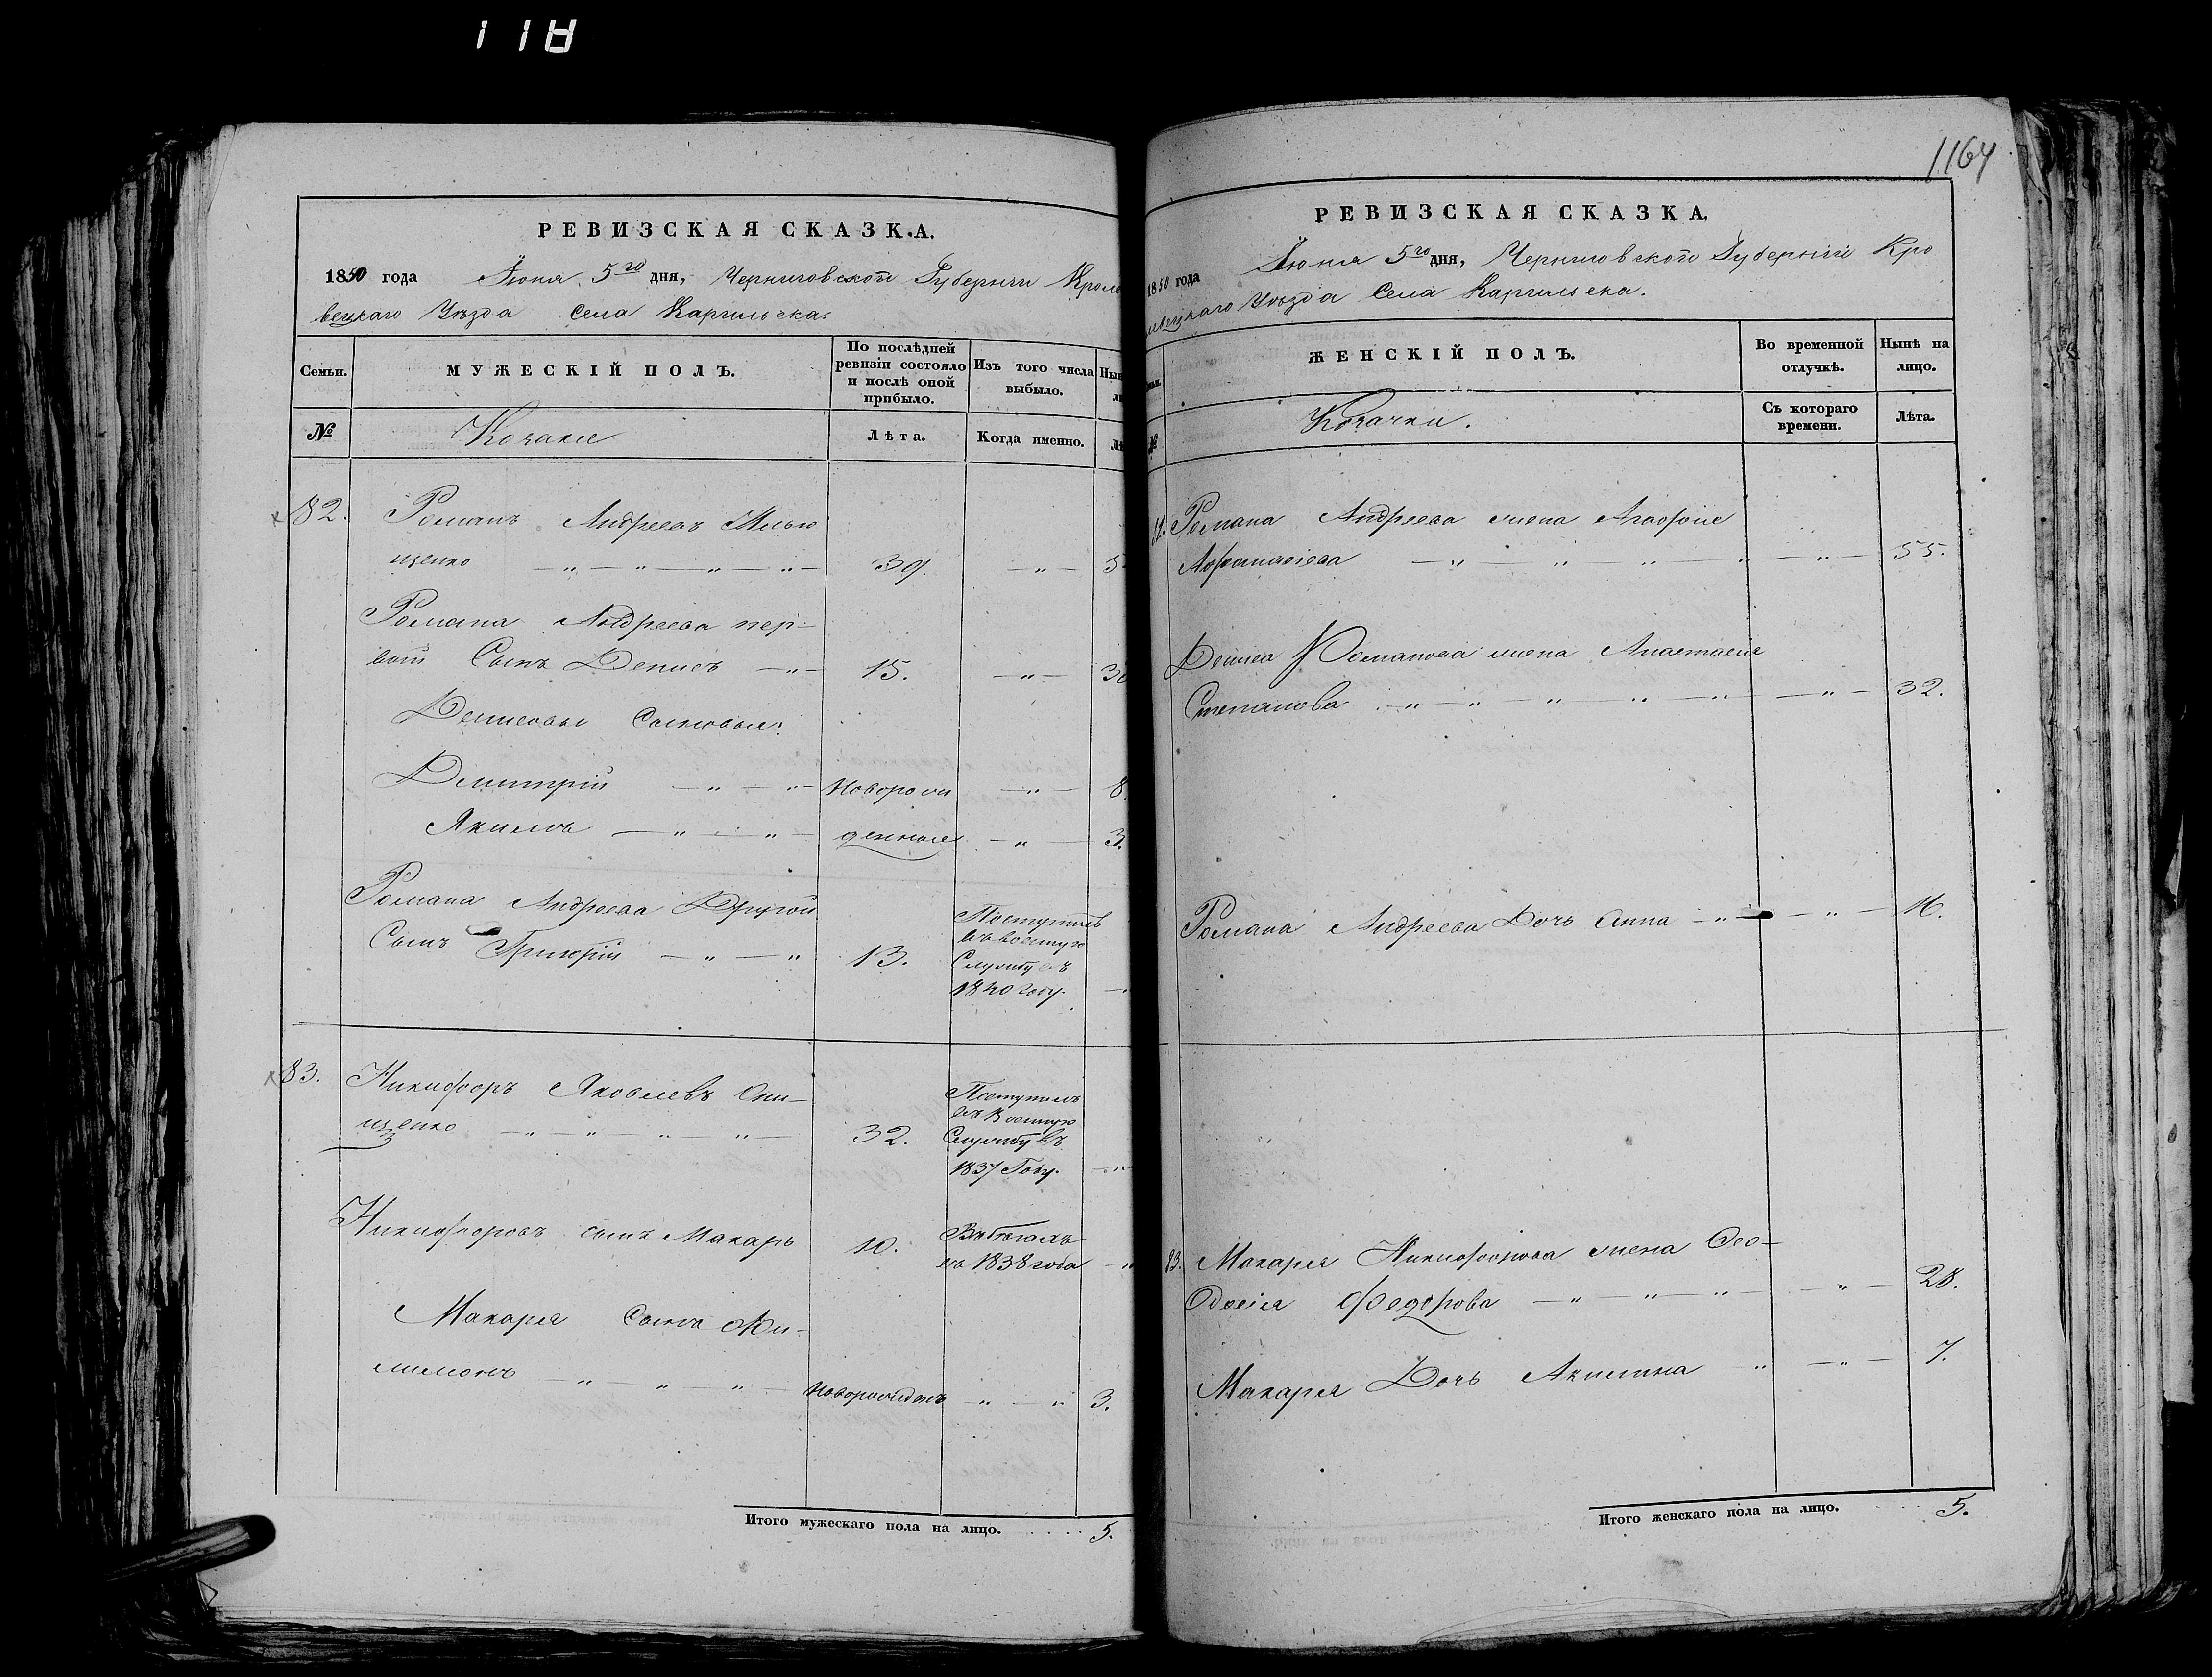 118
РЕВИЗСКАЯ СКАЗКА.
1850 года Июня 5го дня, Черниговской Губернии Кроле
вецкаго Уѣзда Села Каргильска.
Семьи.
МУЖЕСКІЙ ПОЛЪ.
По послѣдней ревизіи состояло и послѣ оной прибыло.
Изъ того числа выбыло.
№
Козаки
Лѣта.
Когда именно.
82. Романъ Андреевъ
щенко 39.
Романа Андреева пер-
вой Сынъ Денисъ 15. 30
Денисовы Сыновья:
Дмитрій Новорож 8.
Якимъ денные 3.
Романа Андреева Другой
Сынъ Григорій 13.
Поступилъ
въ военную
Службу въ
1840 году.
83. Никифоръ Яковлевъ Они-
щенко 32.
Поступилъ
въ Военную
Службу въ
1837 Году.
Никифоровъ сынъ Макаръ 10.
Въ бѣгахъ
съ 1838 года
Макара Сынъ Фи-
лимонъ Новорожденъ 3.
Итого мужескаго пола на лицо. 5.
1164
РЕВИЗСКАЯ СКАЗКА,
1850 года Июня 5го дня, Черниговской Губерніи Кро
левецкаго Уѣзда Села Каргильска.
ЖЕНСКІЙ ПОЛЪ.
Во временной отлучкѣ.
Нынѣ на лицо.
№
Козачки.
Съ котораго времени.
Лѣта.
Романа Андреева жена Агафія
Афанасіева 55.
Дениса Романова жена Анастасія
Степанова 32.
Романа Андреева Дочь Анна 16.
83. Макара Никифорова жена Ѳео-
досія Федорова 28.
Макара Дочь Акилина 7.
Итого женскаго пола на лицо. 5.